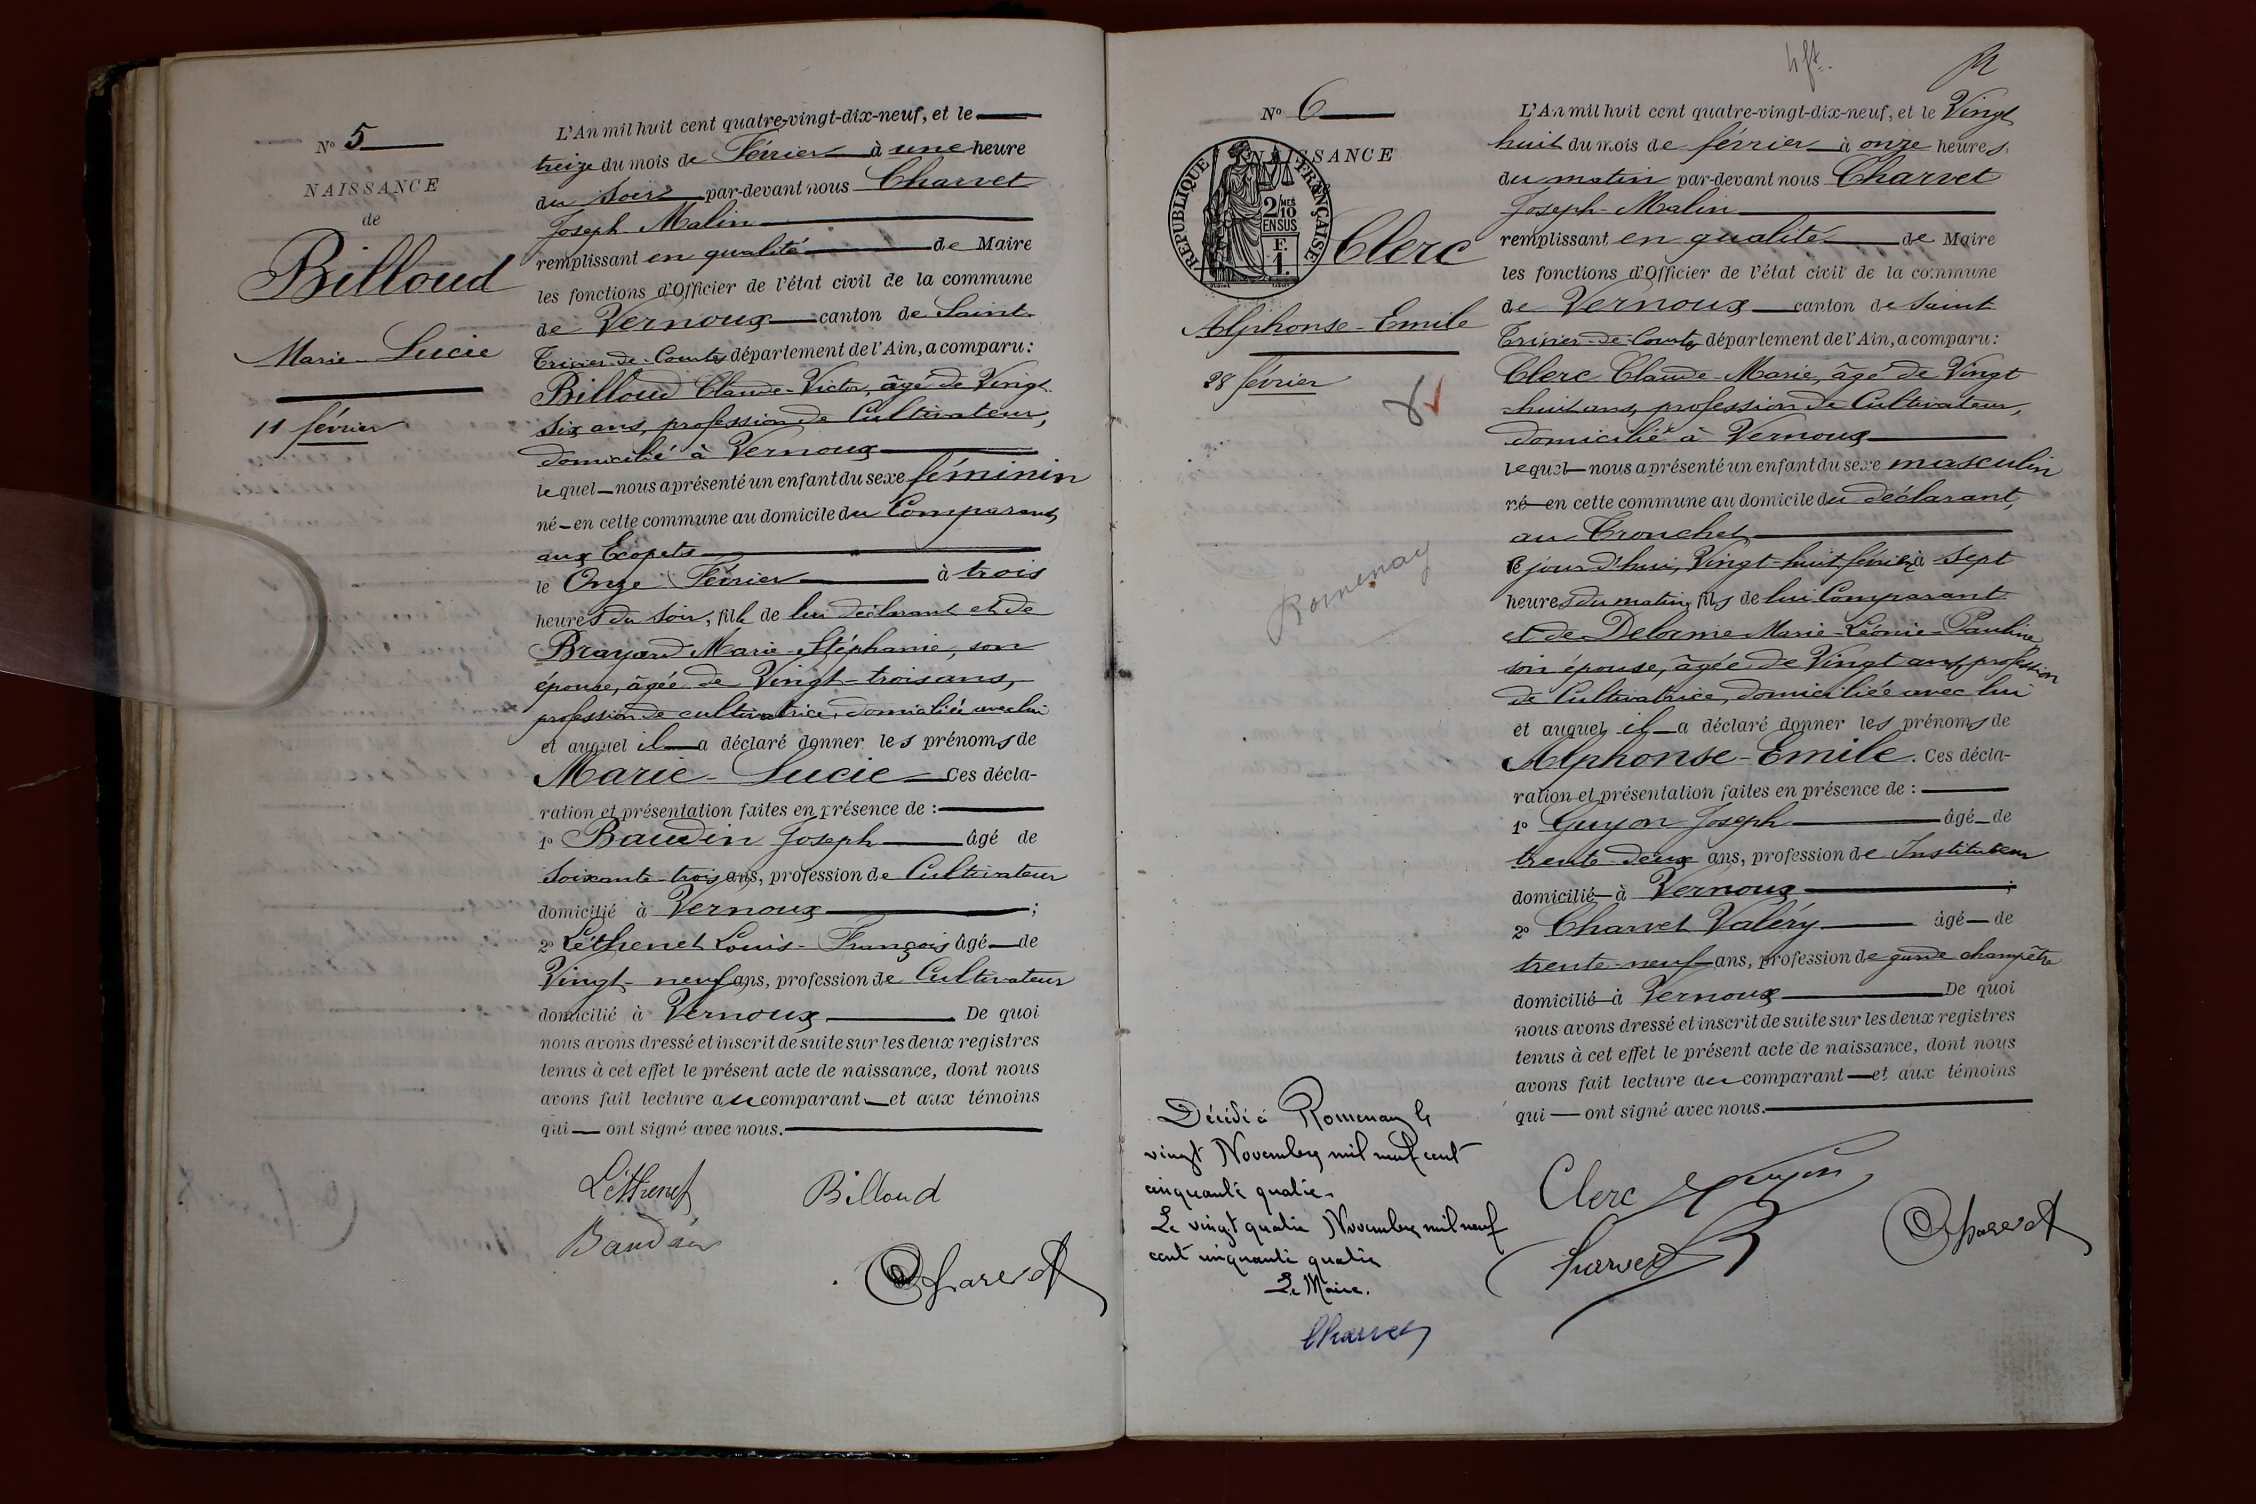 N° 5
NAISSANCE
de
Billoud
Marie-Lucie
11 février
L'An mil huit cent quatre-vingt-dix-neuf, et le
treize du mois de Février à une heure
du soir par-devant nous Charvet
Joseph Malin
remplissant en qualité de Maire
les fonctions d'Officier de l'état civil de la commune
de Vernoux canton de Saint-
Trivier-de-Courtes département de l'Ain, a comparu :
Billoud Claude-Victor, âgé de Vingt-
six ans, profession de Cultivateur,
domicilié à Vernoux
lequel nous a présenté un enfant du sexe féminin
né en cette commune au domicile du Comparant,
aux Ecopets
le Onze Février à trois
heures du soir, fille de lui déclarant et de
Brayard Marie-Stéphanie, son
épouse, âgée de Vingt-trois ans,
profession de cultivatrice, domiciliée avec lui
et auquel il a déclaré donner les prénoms de
Marie-Lucie Ces décla-
ration et présentation faites en présence de :
1° Baudin Joseph âgé de
Soixante-trois ans, profession de Cultivateur
domicilié à Vernoux ;
2° Léthenet Louis-François âgé de
Vingt-neuf ans, profession de Cultivateur
domicilié à Vernoux De quoi
nous avons dressé et inscrit de suite sur les deux registres
tenus à cet effet le présent acte de naissance, dont nous
avons fait lecture au comparant et aux témoins
qui ont signé avec nous.
Léthenet Billoud
Baudin
Charvet
N° 6
NAISSANCE
RÉPUBLIQUE FRANÇAISE
2/10 MES
EN SUS
F.
1.
Clerc
Alphonse-Emile
28 février
Romenay
Décédé à Romenay le
vingt Novembre mil neuf cent
cinquante quatre.
Le vingt quatre Novembre mil neuf
cent cinquante quatre
Le Maire.
Charvet
L'An mil huit cent quatre-vingt-dix-neuf, et le Vingt
huit du mois de février à onze heures
du matin par-devant nous Charvet
Joseph-Malin
remplissant en qualité de Maire
les fonctions d'Officier de l'état civil de la commune
de Vernoux canton de Saint
Trivier-de-Courtes département de l'Ain, a comparu :
Clerc Claude-Marie, âgé de Vingt
huit ans, profession de Cultivateur,
domicilié à Vernoux
lequel nous a présenté un enfant du sexe masculin
né en cette commune au domicile du déclarant,
au Cronchet
Ce jour d'hui, Vingt-huit février, à sept
heures du matin, fils de lui Comparant
et de Delorme Marie-Léonie-Pauline
son épouse, âgée de Vingt ans, profession
de Cultivatrice, domiciliée avec lui
et auquel il a déclaré donner les prénoms de
Alphonse-Emile. Ces décla-
ration et présentation faites en présence de :
1° Guyon Joseph âgé de
trente-deux ans, profession de Instituteur
domicilié à Vernoux ;
2° Charvet Valéry âgé de
trente-neuf ans, profession de garde champêtre
domicilié à Vernoux De quoi
nous avons dressé et inscrit de suite sur les deux registres
tenus à cet effet le présent acte de naissance, dont nous
avons fait lecture au comparant et aux témoins
qui ont signé avec nous.
Clerc Guyon
Charvet Charvet